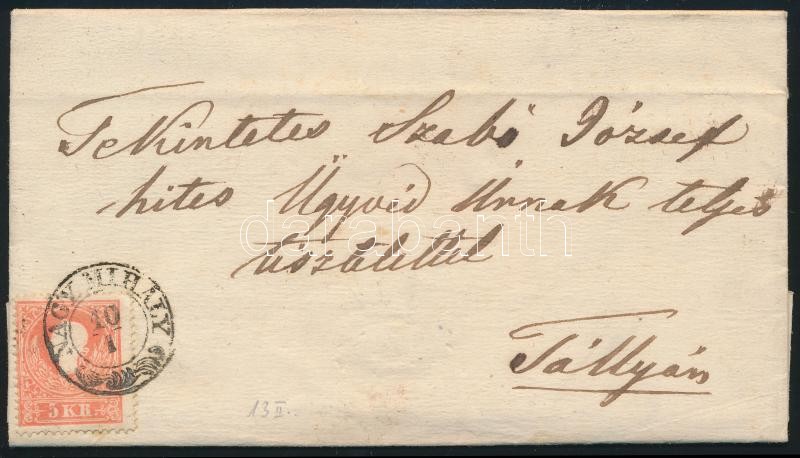 Tekintetes Szabó József
hites Ügyvéd Úrnak teljes
tisztelettel
Tállyán
NAGY MIHÁLY
10
1
5 KR
13 II..
darabanth